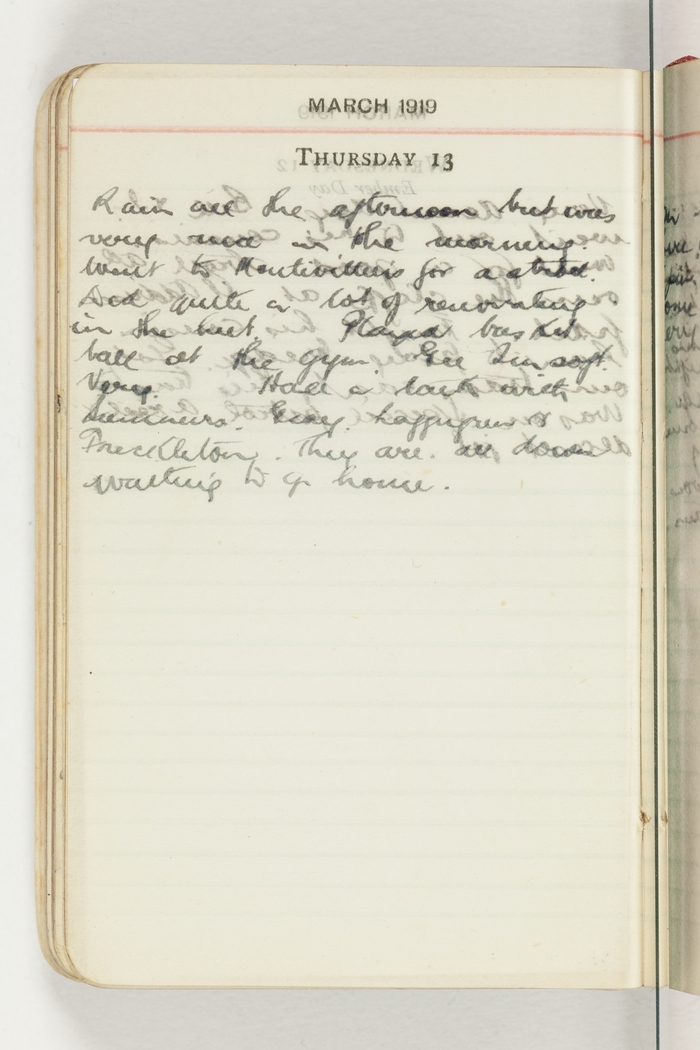 MARCH 1919
THURSDAY 13
Rain all the afternoon but was
very nice in the morning.
Went to Montivilliers for a stroll.
Did quite a lot of renovating
in the hut. Played basket
ball at the gym Gee I'm soft.
Very. Had a talk with
Summers. Gray.
Freckleton. They are all down
waiting to go home.